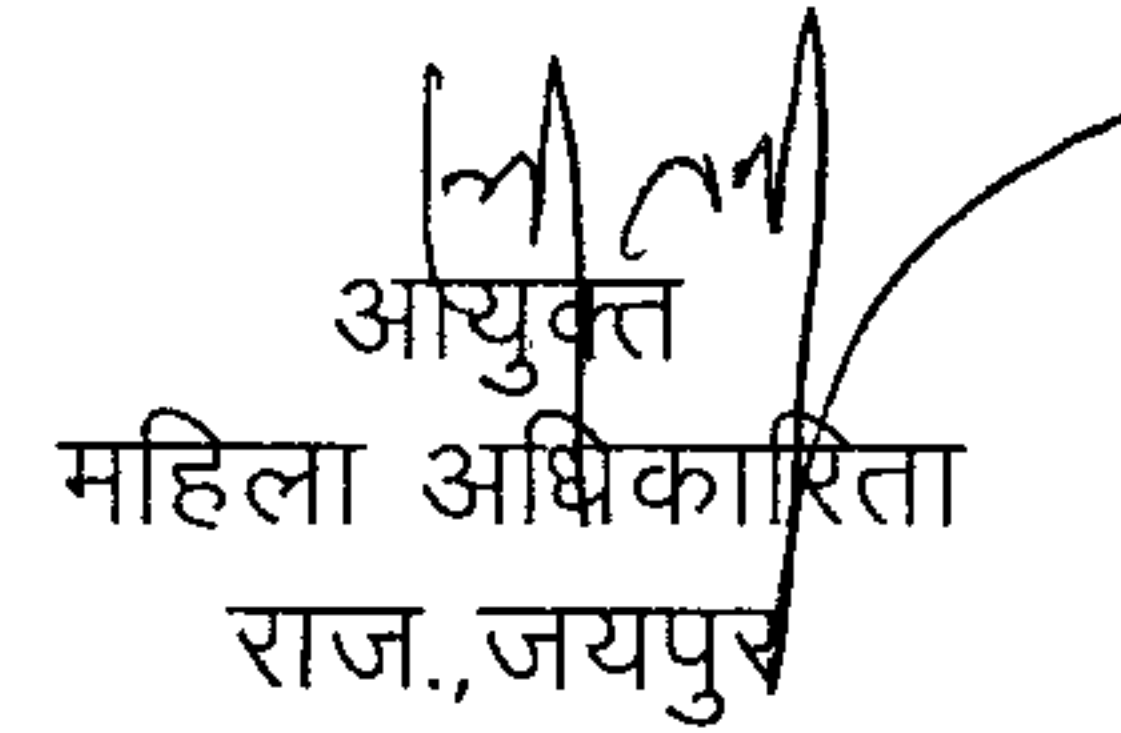 आयुक्त
महिला अधिकारिता
राज.,जयपुर